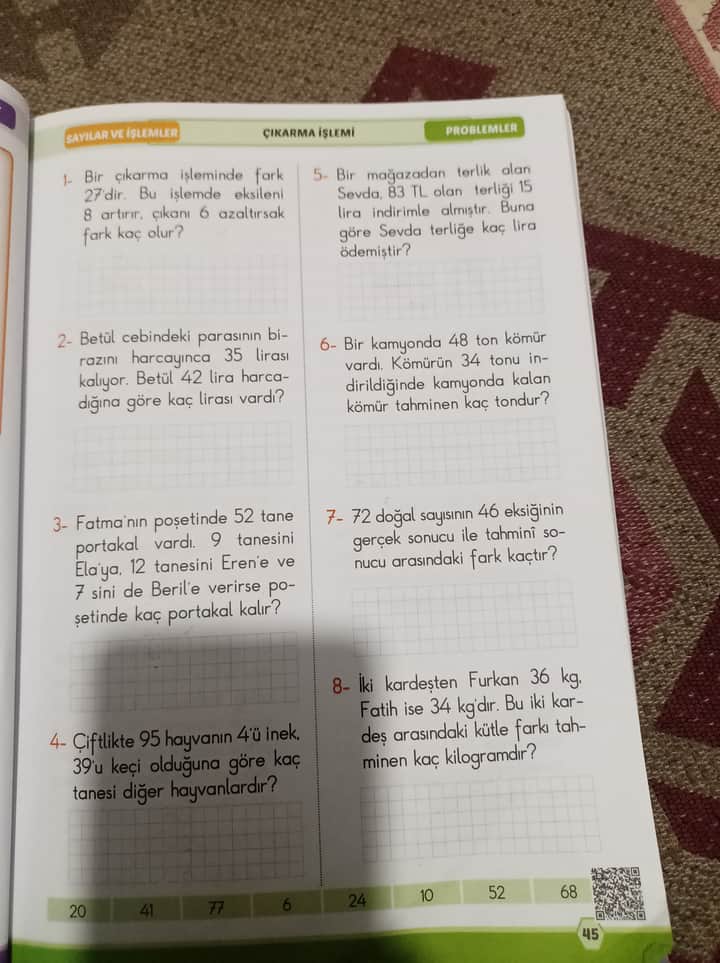 SAYILAR VE İŞLEMLER
ÇIKARMA İŞLEMİ
PROBLEMLER
1- Bir çıkarma işleminde fark
27'dir. Bu işlemde eksileni
8 artırır, çıkanı 6 azaltırsak
fark kaç olur?
2- Betül cebindeki parasının bi-
razını harcayınca 35 lirası
kalıyor. Betül 42 lira harca-
dığına göre kaç lirası vardı?
3- Fatma'nın poşetinde 52 tane
portakal vardı. 9 tanesini
Ela'ya, 12 tanesini Eren'e ve
7 sini de Beril'e verirse po-
şetinde kaç portakal kalır?
4- Çiftlikte 95 hayvanın 4'ü inek,
39'u keçi olduğuna göre kaç
tanesi diğer hayvanlardır?
5- Bir mağazadan terlik alan
Sevda, 83 TL olan terliği 15
lira indirimle almıştır. Buna
göre Sevda terliğe kaç lira
ödemiştir?
6- Bir kamyonda 48 ton kömür
vardı. Kömürün 34 tonu in-
dirildiğinde kamyonda kalan
kömür tahminen kaç tondur?
7- 72 doğal sayısının 46 eksiğinin
gerçek sonucu ile tahminî so-
nucu arasındaki fark kaçtır?
8- İki kardeşten Furkan 36 kg,
Fatih ise 34 kg'dır. Bu iki kar-
deş arasındaki kütle farkı tah-
minen kaç kilogramdır?
20 41 77 6 24 10 52 68
45